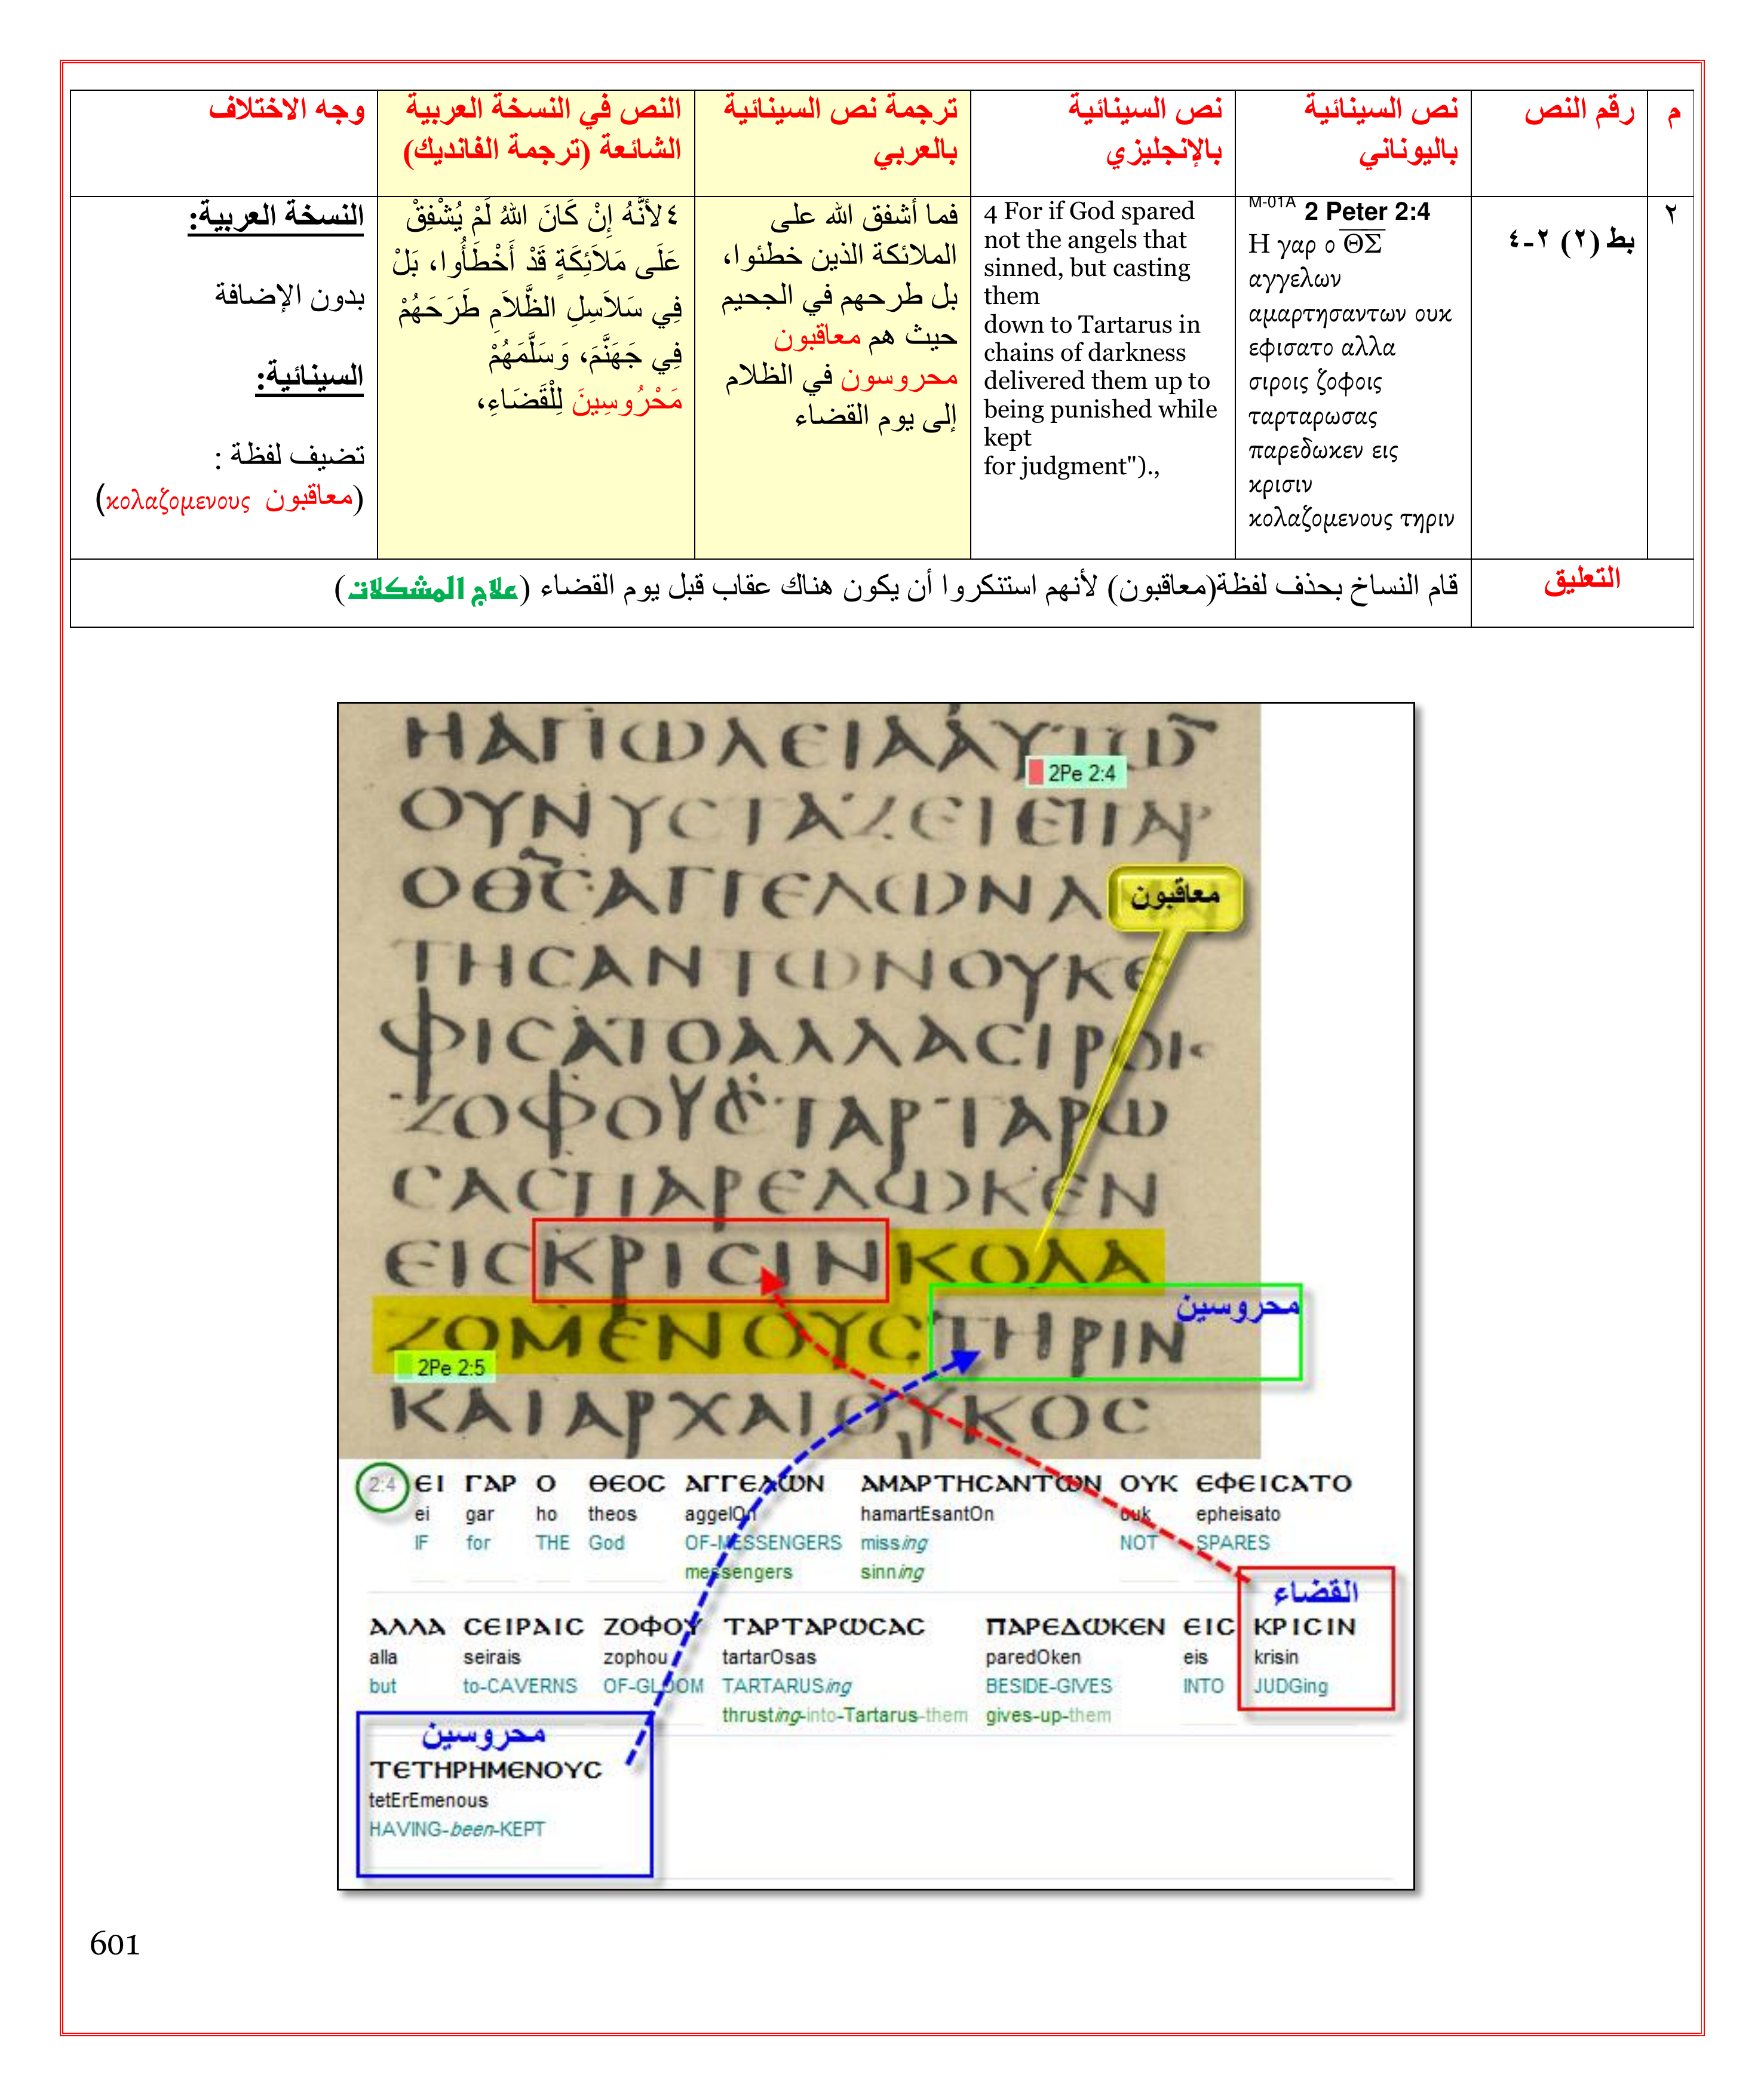 م
رقم النص
نص السينائية
باليوناني
نص السينائية
بالإنجليزي
ترجمة نص السينائية
بالعربي
النص في النسخة العربية
الشائعة (ترجمة الفانديك)
وجه الاختلاف
٢
بط (٢) ٢-٤
M-01A 2 Peter 2:4
Η γαρ ο ΘΣ
αγγελων
αμαρτησαντων ουκ
εφισατο αλλα
σιροις ζοφοις
ταρταρωσας
παρεδωκεν εις
κρισιν
κολαζομενους τηριν
4 For if God spared
not the angels that
sinned, but casting
them
down to Tartarus in
chains of darkness
delivered them up to
being punished while
kept
for judgment").,
فما أشفق الله على
الملائكة الذين خطئوا،
بل طرحهم في الجحيم
حيث هم معاقبون
محروسون في الظلام
إلى يوم القضاء
٤ لأَنَّهُ إِنْ كَانَ اللهُ لَمْ يُشْفِقْ
عَلَى مَلاَئِكَةٍ قَدْ أَخْطَأُوا، بَلْ
فِي سَلاَسِلِ الظَّلاَمِ طَرَحَهُمْ
فِي جَهَنَّمَ، وَسَلَّمَهُمْ
مَحْرُوسِينَ لِلْقَضَاءِ،
النسخة العربية:
بدون الإضافة
السينائية:
تضيف لفظة :
(معاقبون κολαζομενους)
التعليق
قام النساخ بحذف لفظة(معاقبون) لأنهم استنكروا أن يكون هناك عقاب قبل يوم القضاء (علاج المشكلات)
ΗΑΠΩΛΕΙΑΑΥΤΩ
2Pe 2:4
ΟΥΝΥСΤΑΖΕΙΕΙΓΑΡ
ΟΘСΑΓΓΕΛΩΝΑ
معاقبون
ΤΗСΑΝΤΩΝΟΥΚΕ
ΦΙСΑΤΟΑΛΛΑСΙΡΟΙ
ΖΟΦΟΥСΤΑΡΤΑΡΩ
СΑСΠΑΡΕΔΩΚΕΝ
ΕΙСΚΡΙСΙΝΚΟΛΑ
محروسين
ΖΟΜΕΝΟΥСΤΗΡΙΝ
2Pe 2:5
ΚΑΙΑΡΧΑΙΟΥΚΟС
2:4 ЄΙ ΓΑΡ Ο ΘЄΟС ΑΓΓЄΛΩΝ ΑΜΑΡΤΗСΑΝΤΩΝ ΟΥΚ ЄΦЄΙСΑΤΟ
ei gar ho theos aggelOn hamartEsantOn ouk epheisato
IF for THE God OF-MESSENGERS missing NOT SPARES
messengers sinning
القضاء
ΑΛΛΑ СЄΙΡΑΙС ΖΟΦΟΥ ΤΑΡΤΑΡΩСΑС ΠΑΡЄΔΩΚЄΝ ЄΙС ΚΡΙСΙΝ
alla seirais zophou tartarOsas paredOken eis krisin
but to-CAVERNS OF-GLOOM TARTARUSing BESIDE-GIVES INTO JUDGing
thrusting-into-Tartarus-them gives-up-them
محروسين
ΤЄΤΗΡΗΜЄΝΟΥС
tetErEmenous
HAVING-been-KEPT
601